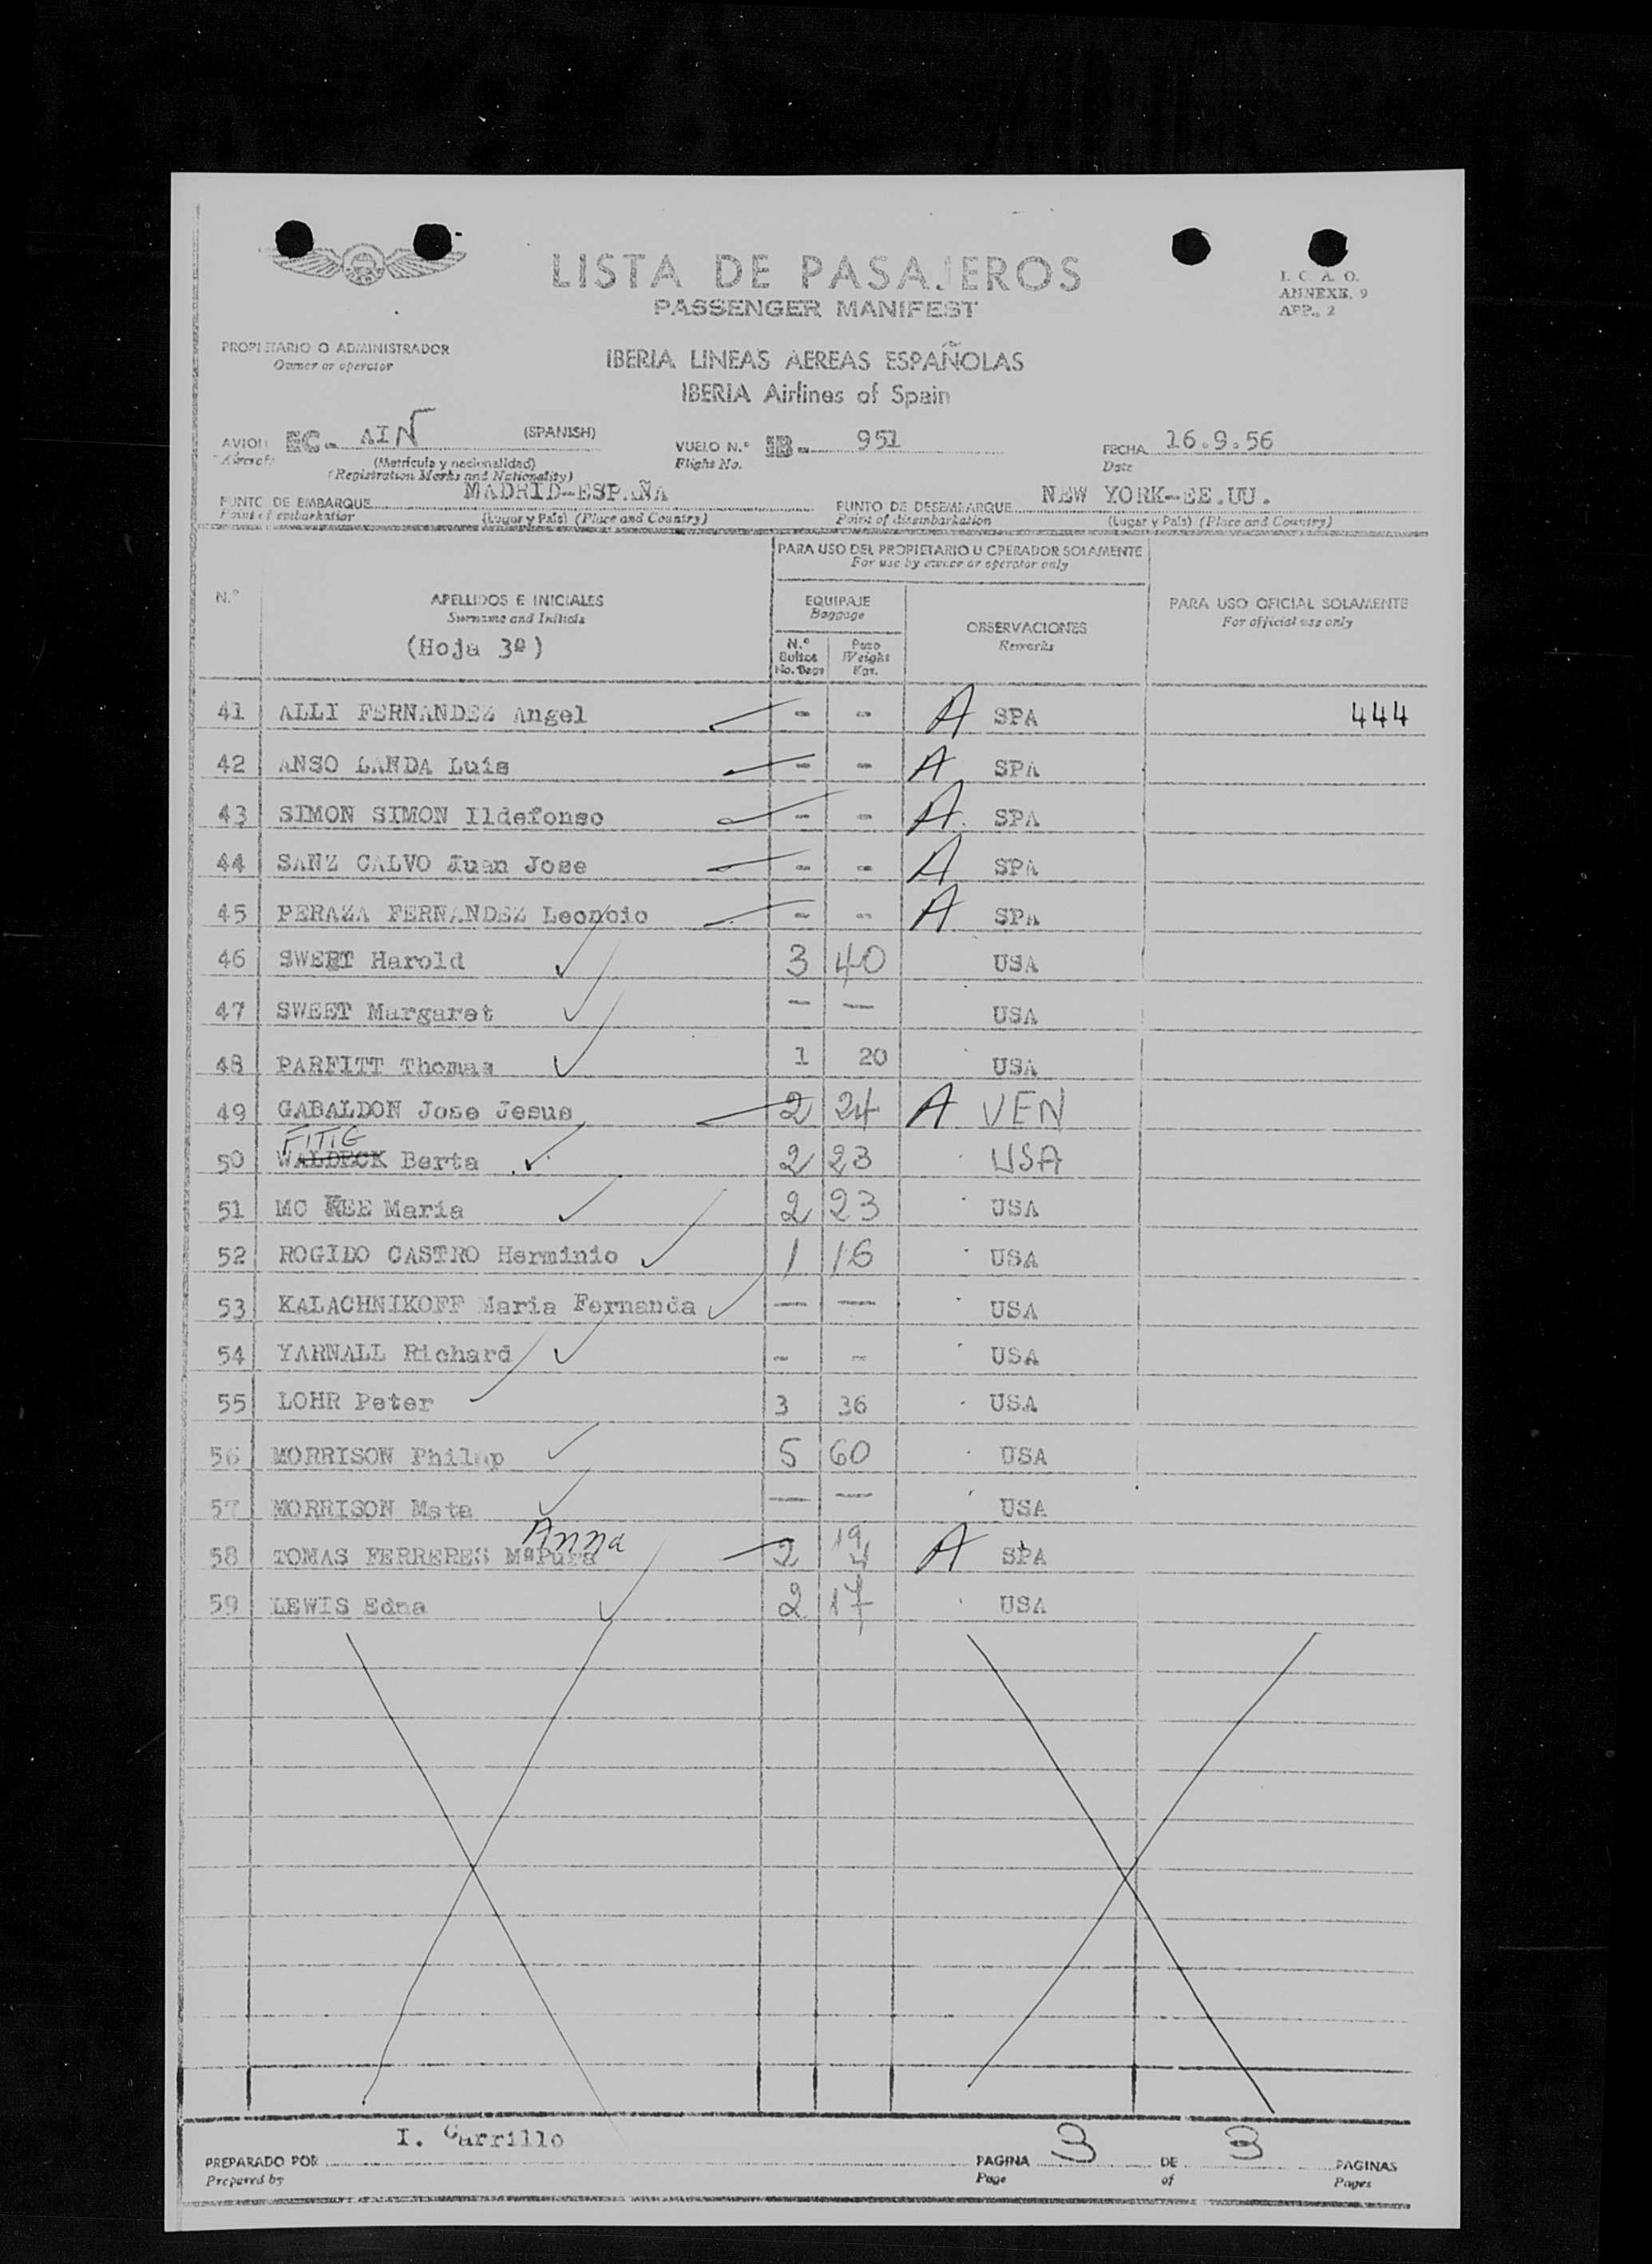 LISTA DE PASAJEROS
PASSENGER MANIFEST
I. C. A. O.
ANNEXE. 9
APP., 2
PROPIETARIO O ADMINISTRADOR
Owner or operator
IBERIA LINEAS AEREAS ESPAÑOLAS
IBERIA Airlines of Spain
AVION EC- AIN (SPANISH) VUELO N.º IB- 951 FECHA 16.9.56
Aircraft (Matrícula y nacionalidad) Flight No. Date
(Registration Marks and Nationality)
PUNTO DE EMBARQUE MADRID-ESPAÑA PUNTO DE DESEMBARQUE NEW YORK-EE.UU.
Point of embarkation (Lugar y País) (Place and Country) Point of disembarkation (Lugar y País) (Place and Country)
PARA USO DEL PROPIETARIO U OPERADOR SOLAMENTE
For use by owner or operator only
N.º APELLIDOS E INICIALES EQUIPAJE PARA USO OFICIAL SOLAMENTE
Surname and Initials Baggage For official use only
OBSERVACIONES
Remarks
(Hoja 3ª)
N.º Bultos Peso
No. Bags Weight Kgr.
41 ALLI FERNANDEZ Angel - - A SPA 444
42 ANSO LANDA Luis - - A SPA
43 SIMON SIMON Ildefonso - - A SPA
44 SANZ CALVO Juan Jose - - A SPA
45 PERAZA FERNANDEZ Leoncio - - A SPA
46 SWEET Harold 3 40 USA
47 SWEET Margaret - - USA
48 PARFITT Thomas 1 20 USA
49 GABALDON Jose Jesus 2 24 A VEN
FITIG
50 WALDECK Berta 2 23 USA
51 MC KEE Maria 2 23 USA
52 ROGIDO CASTRO Herminio 1 16 USA
53 KALACHNIKOFF Maria Fernanda - - USA
54 YARNALL Richard - - USA
55 LOHR Peter 3 36 USA
56 MORRISON Philip 5 60 USA
57 MORRISON Msta - - USA
Anna
58 TOMAS FERRERES MªPura 2 19 A SPA
59 LEWIS Edna 2 17 USA
I. Carrillo
PREPARADO POR PAGINA 3 DE 3 PAGINAS
Prepared by Page of Pages